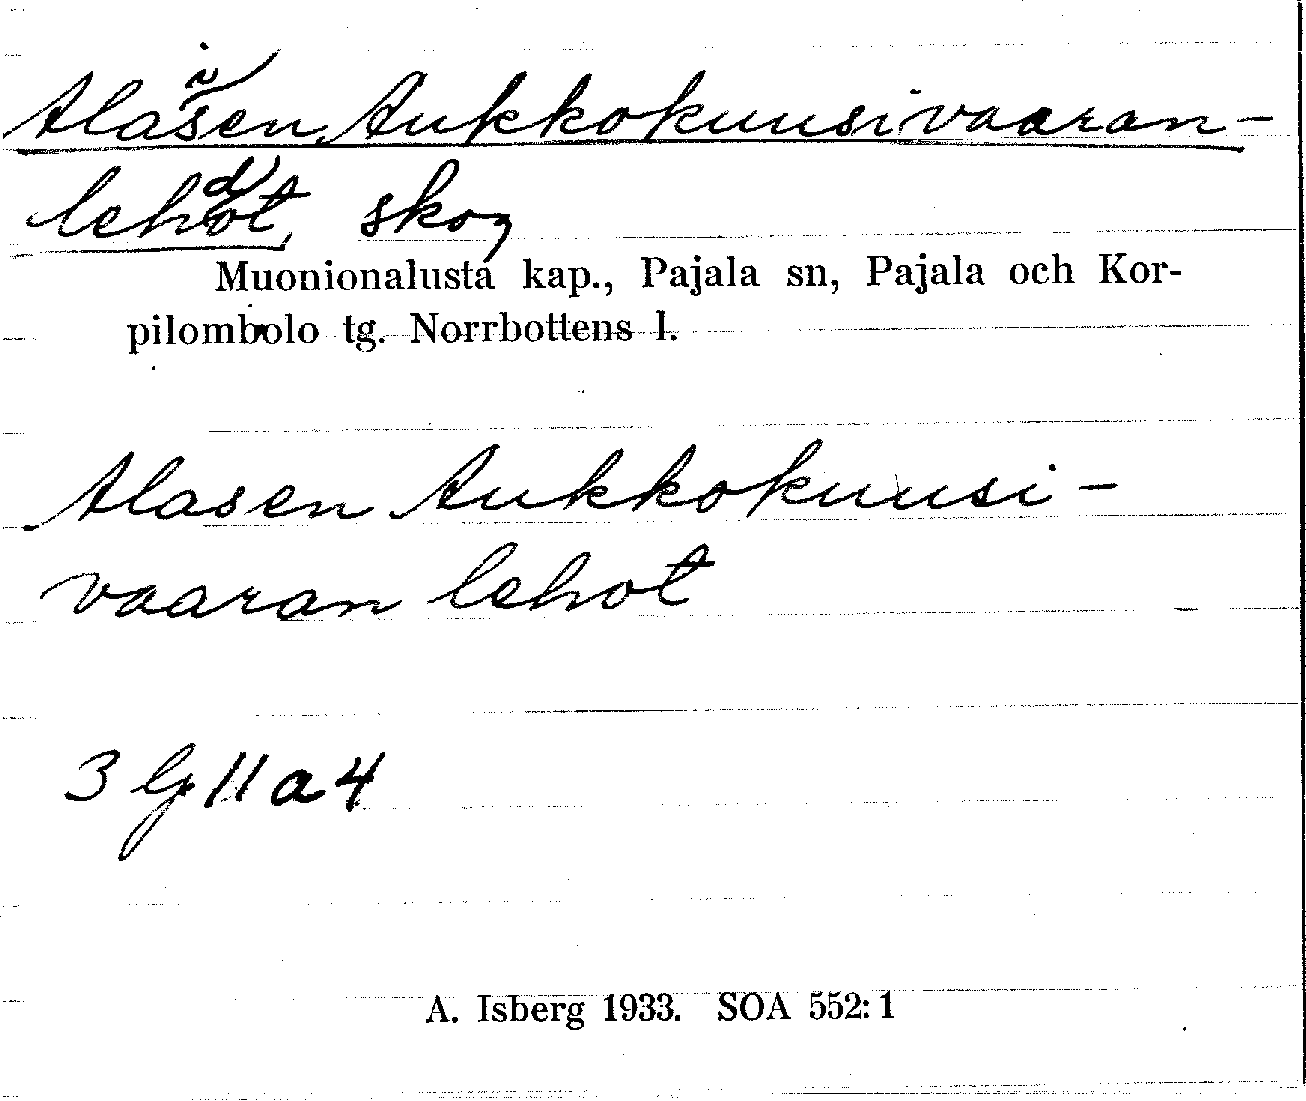 Alaisen Aukkokuusivaaran-
lehdot, skog
Muonionalusta kap., Pajala sn, Pajala och Kor-
pilombolo tg. Norrbottens l.
Alasen Aukkokuusi-
vaaran lehot
3 lg 11 a 4
A. Isberg 1933. SOA 552: 1